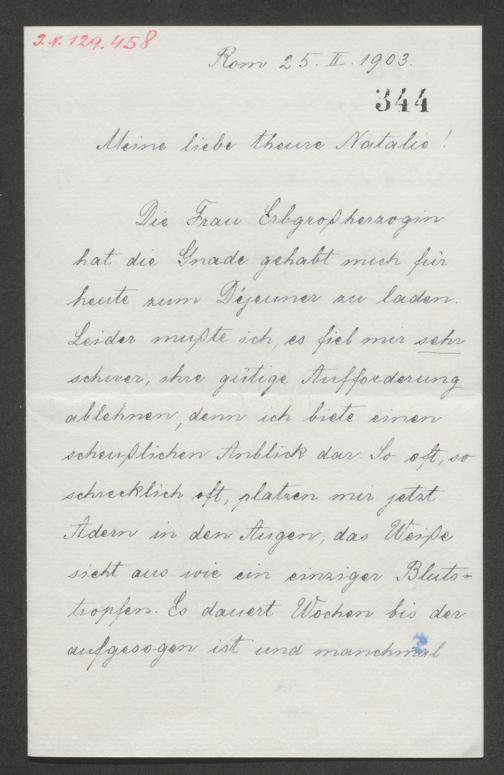 J.N. 129.458
Rom 25. II. 1903.
344
Meine liebe theure Natalie!
Die Frau Erbgroßherzogin
hat die Gnade gehabt mich für
heute zum Déjeuner zu laden.
Leider mußte ich, es fiel mir sehr
schwer, ihre gütige Aufforderung
ablehnen, denn ich biete einen
scheußlichen Anblick dar. So oft, so
schrecklich oft, platzen mir jetzt
Adern in den Augen, das Weiße
sieht aus wie ein einziger Bluts-
tropfen. Es dauert Wochen bis der
aufgesogen ist und manchmal